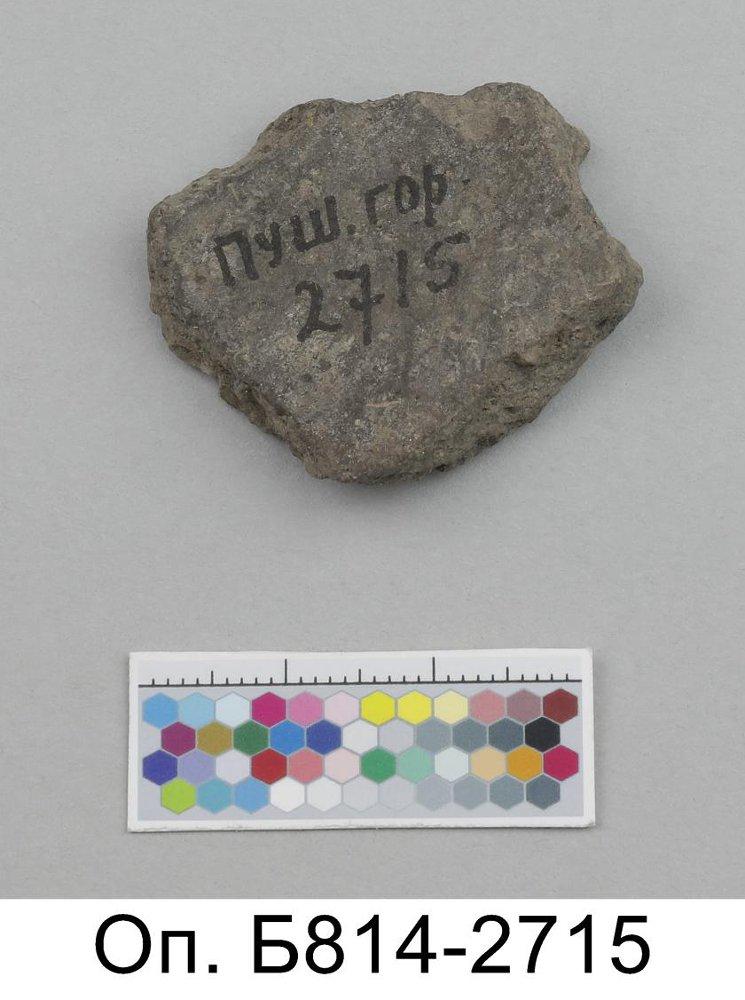 пуш. гор.
2715
Оп. Б814-2715